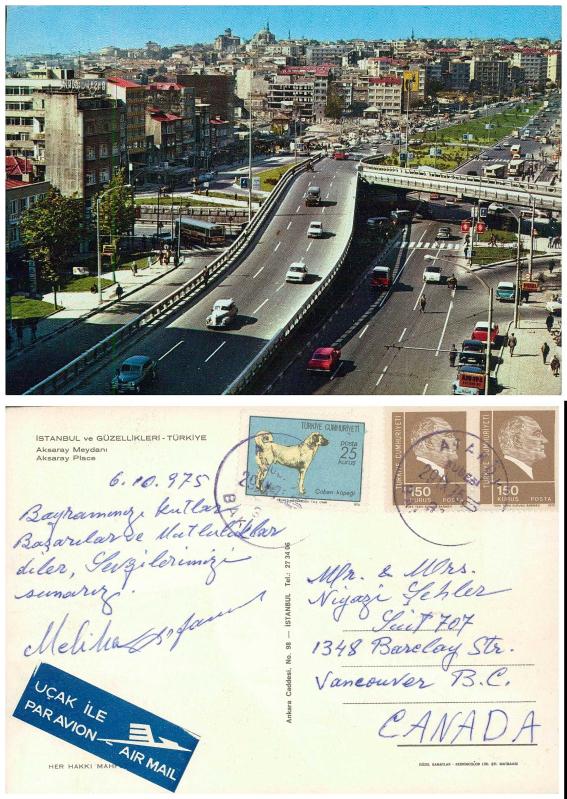 İSTANBUL ve GÜZELLİKLERİ - TÜRKİYE
Aksaray Meydanı
Aksaray Place
6.10.975
Bayramınızı kutlar
Başarılar ve Mutluluklar
diler, Sevgilerimizi
sunarız.
Meliha
TÜRKİYE CUMHURİYETİ
posta
25
kuruş
Çoban köpeği
TÜRKİYE CUMHURİYETİ
150
KURUŞ POSTA
TÜRKİYE CUMHURİYETİ
150
KURUŞ POSTA
Ankara Caddesi, No. 98 — İSTANBUL Tel.: 27 34 06
Mr. & Mrs.
Niyazi Şehler
Suit 707
1348 Barclay Str.
Vancouver B.C.
CANADA
UÇAK İLE
PAR AVION
AIR MAIL
HER HAKKI